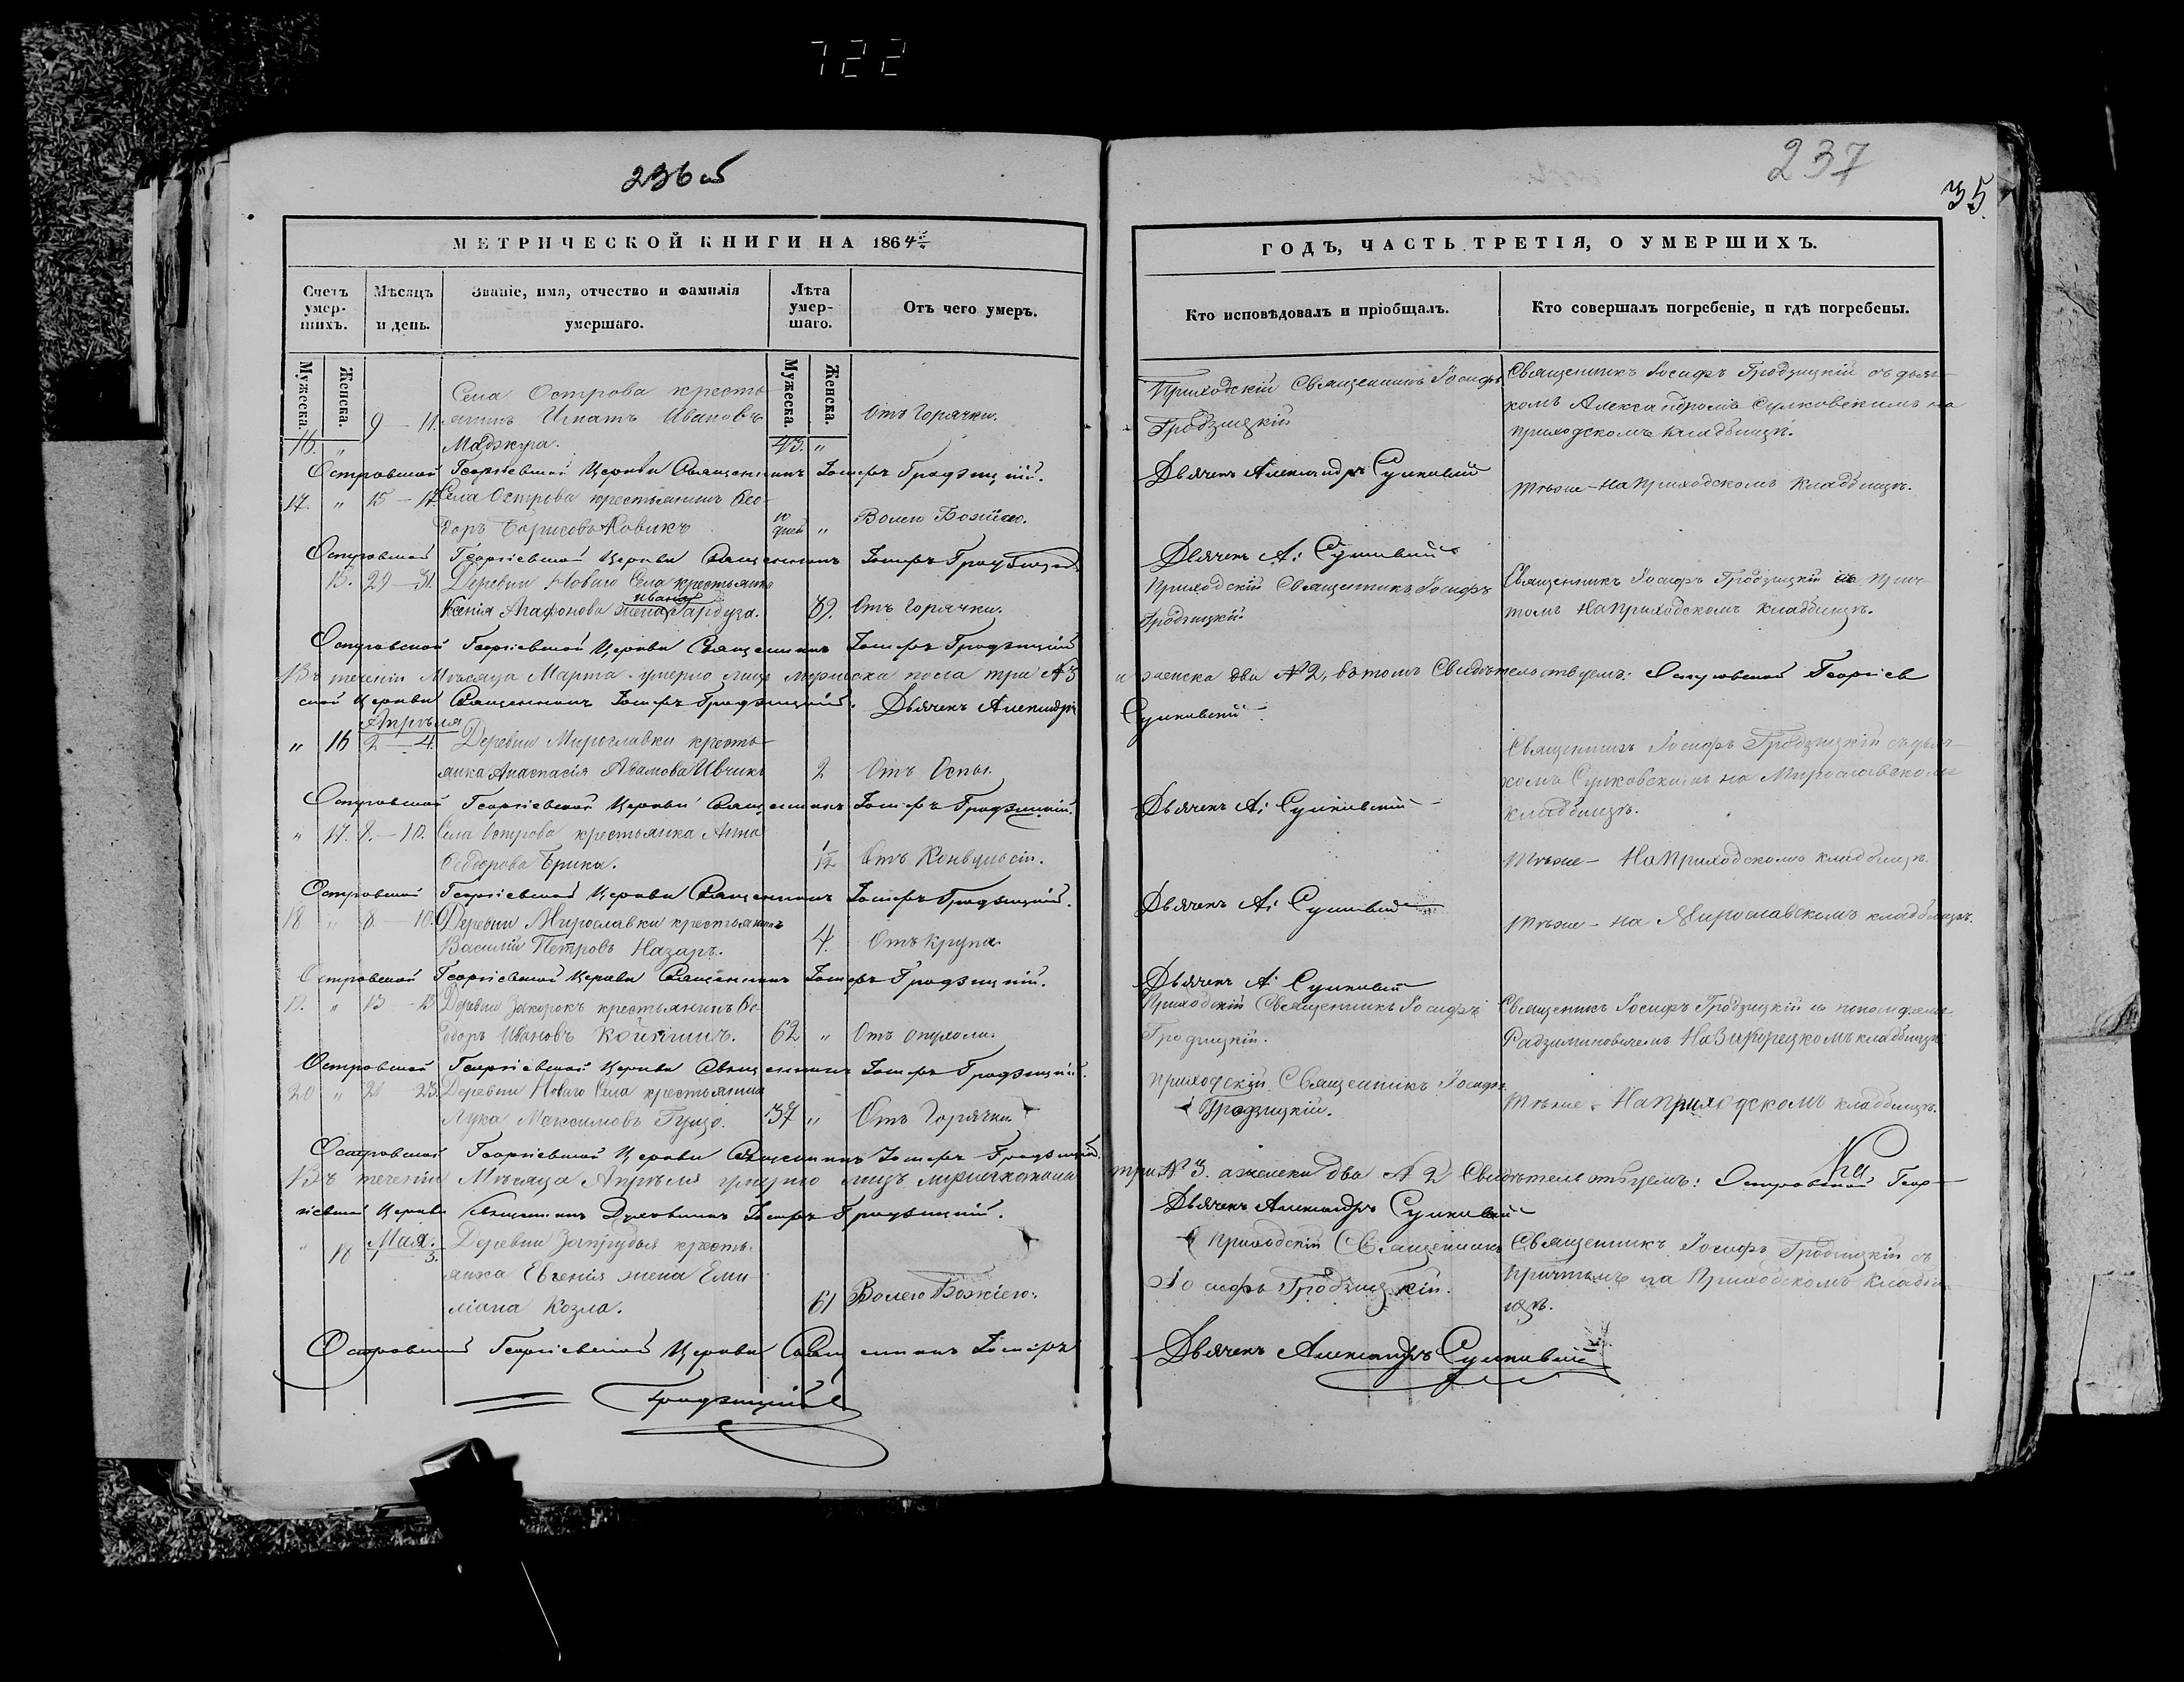 722
236 об
237
35.
МЕТРИЧЕСКОЙ КНИГИ НА 1864
ГОДЪ, ЧАСТЬ ТРЕТІЯ, О УМЕРШИХЪ.
Счетъ умер-шихъ.
Мѣсяцъ и день.
Званіе, имя, отчество и фамилія умершаго.
Лѣта умер-шаго.
Отъ чего умеръ.
Кто исповѣдовалъ и пріобщалъ.
Кто совершалъ погребеніе, и гдѣ погребены.
Мужеска.
Женска.
Мужеска.
Женска.
Села Острова кресть-
9 — 11. янинъ Игнатъ Ивановъ Отъ Горячки.
16. " Маджура. 43. "
Приходскій Священникъ Іосифъ
Гродзицкій
Священникъ Іосифъ Гродзицкій съ дьяч-
комъ Александромъ Сулковскимъ на
приходскомъ кладбищѣ.
Островской Георгіевской Церкви Священникъ Іосифъ Гродзицкій.
Дьячекъ Александръ Сулковскій
17. " 15 — 17. Села Острова крестьянинъ Ѳео-
доръ Борисовъ Новикъ 10 дней " Волею Божіею.
Тѣже — На приходскомъ кладбищѣ.
Островской Георгіевской Церкви Священникъ Іосифъ Гродзицкій
Дьячекъ А: Сулковскій
15. 29 — 31. Деревни Новаго Села крестьянка
Ивана
Ксенія Агафонова жена Гардуза. 39. Отъ горячки.
Приходскій Священникъ Іосифъ
Гродзицкій.
Священникъ Іосифъ Гродзицкій съ прич-
томъ на приходскомъ кладбищѣ.
Островской Георгіевской Церкви Священникъ Іосифъ Гродзицкій
Въ теченіи Мѣсяца Марта умерло лицъ мужеска пола три № 3 а женска два № 2, въ томъ Свидѣтельствуемъ: Островской Георгіев
ской Церкви Священникъ Іосифъ Гродзицкій. Дьячекъ Александръ Сулковскій
Апрѣля
" 16 2 — 4. Деревни Мирославки кресть-
янка Анастасія Адамова Ивчикъ 2 Отъ Оспы.
Священникъ Іосифъ Гродзицкій съ дьяч-
комъ Сулковскимъ на Мирославскомъ
кладбищѣ.
Островской Георгіевской Церкви Священникъ Іосифъ Гродзицкій.
Дьячекъ А: Сулковскій
" 17. 8. — 10. Села Острова крестьянка Анна
Ѳеодорова Брика. 1/12 Отъ Конвульсіи.
Тѣже — На приходскомъ кладбищѣ.
Островской Георгіевской Церкви Священникъ Іосифъ Гродзицкій.
Дьячекъ А: Сулковскій
18 " 8 — 10. Деревни Мирославки крестьянинъ
Василій Петровъ Назаръ. 4. Отъ крупа.
Тѣже — на Мирославскомъ кладбищѣ.
Островской Георгіевской Церкви Священникъ Іосифъ Гродзицкій.
Дьячекъ А: Сулковскій
19. " 13 — 15 Деревни Закорокъ крестьянинъ Ѳе-
одоръ Ивановъ 62 " Отъ опухоли.
Приходскій Священникъ Іосифъ
Гродзицкій.
Священикъ Іосифъ Гродзицкій съ
Радзиминовичемъ На кладбищѣ
Островской Георгіевской Церкви Священникъ Іосифъ Гродзицкій.
20 " 21 23. Деревни Новаго Села крестьянинъ
Лука Максимовъ Гуцо. 37 " Отъ Горячки.
Приходскій Священникъ Іосифъ
Гродзицкій.
Тѣже — На приходскомъ кладбищѣ.
Островской Георгіевской Церкви Священникъ Іосифъ Гродзицкій.
Въ теченіи Мѣсяца Апрѣля умерло лицъ мужеска пола три № 3. а женска два № 2 Свидѣтельствуемъ: Островской Геор-
гіевской Церкви Священникъ Духовникъ Іосифъ Гродзицкій. Дьячекъ Александръ Сулковскій
Мая.
" 18 1 — 3. Деревни Запрудья кресть-
янка Евгенія жена Еми
ліана Козла. 61 Волею Божіею.
Приходскій Священникъ
Іосифъ Гродзицкій.
Священникъ Іосифъ Гродзицкій съ
Причтомъ на Приходскомъ кладби
щѣ.
Островской Георгіевской Церкви Священникъ Іосифъ
Гродзицкій
Дьячекъ Александръ Сулковскій